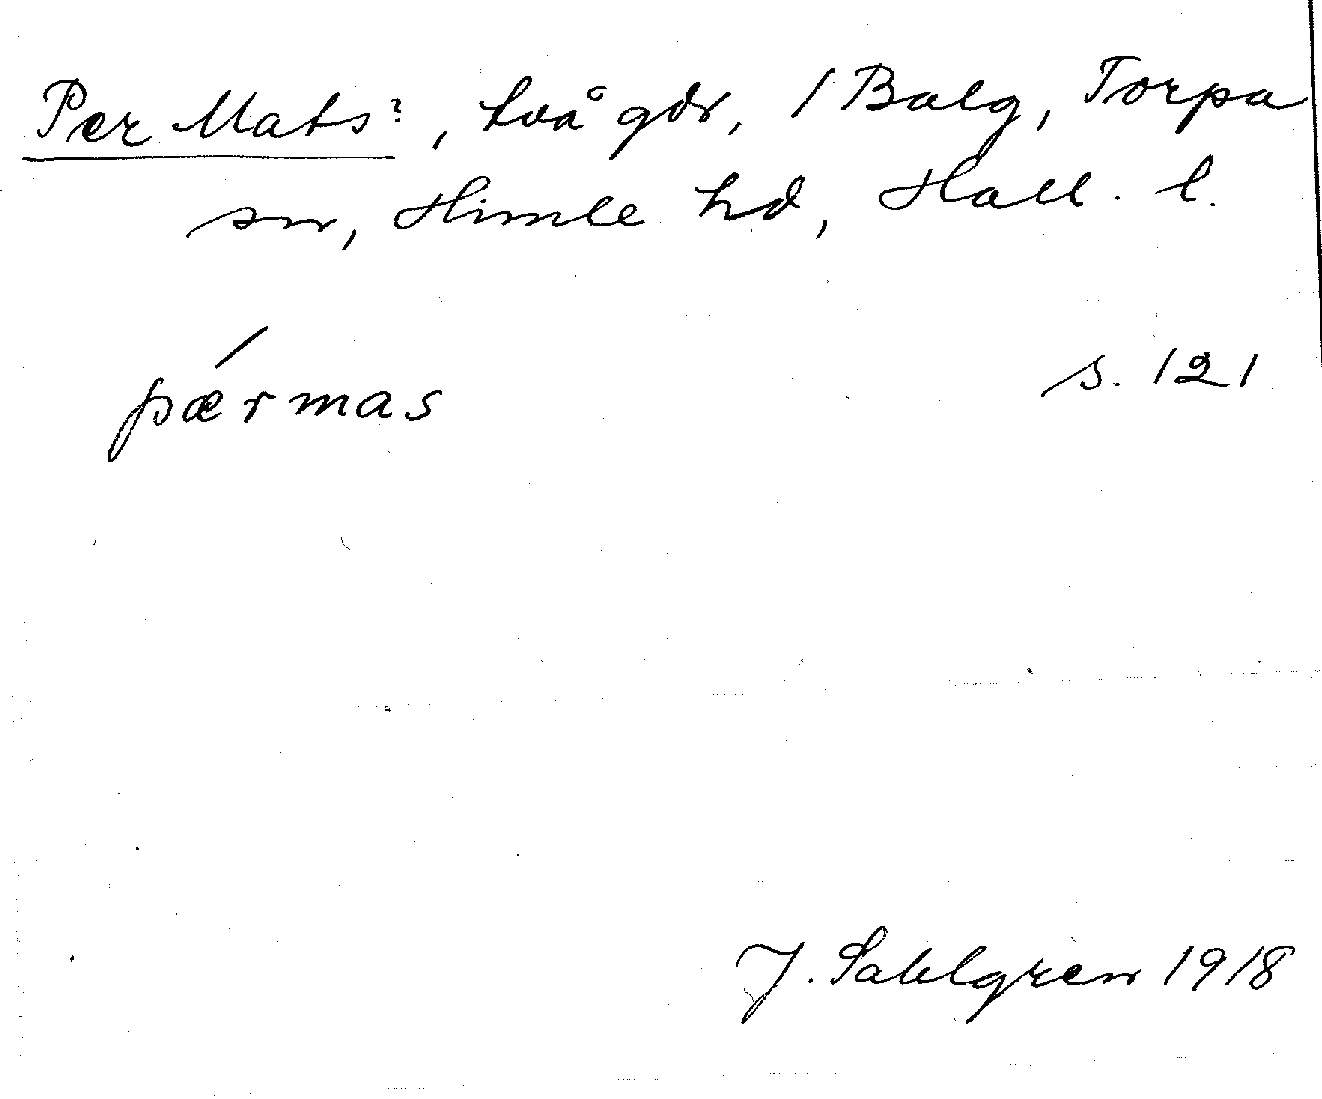 Per Mats?, två gdr, 1 Balg, Torpa
sn, Himle hd, Hall. l.
pǽrmas s. 121
J. Sahlgren 1918